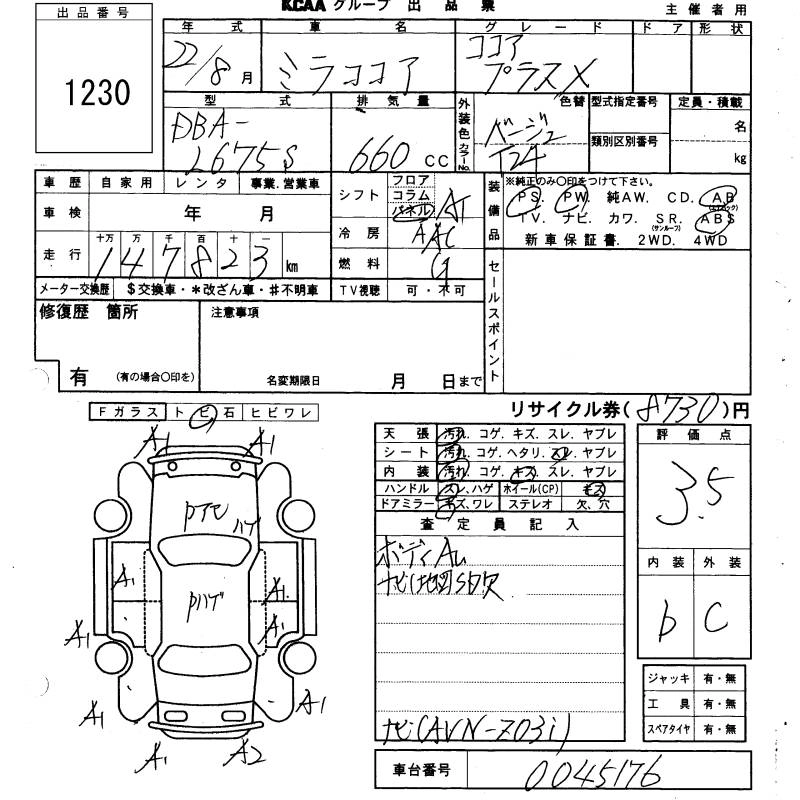 KCAA グループ 出品票
主催者用
出品番号
1230
年式 車名 グレード ドア 形状
22/8月 ミラココア ココア プラスX
型式 排気量 外装色 カラーNo. 色替 型式指定番号 定員・積載
DBA-L675S 660cc ベージュ T24 類別区別番号 名 kg
車歴 自家用 レンタ 事業.営業車
車検 年 月
走行 十万 万 千 百 十 一
147823 km
メーター交換歴 $交換車・*改ざん車・#不明車
シフト フロア コラム パネル AT
冷房 AAC
燃料 G
TV視聴 可・不可
装備品 ※純正のみ〇印をつけて下さい。
PS. PW. 純AW. CD. AB(エアバック)
TV. ナビ. カワ. SR.(サンルーフ) ABS
新車保証書. 2WD. 4WD
セールスポイント
修復歴 箇所
有 (有の場合〇印を)
注意事項
名変期限日 月 日まで
リサイクル券(8730)円
Fガラス トビ石 ヒビワレ
A1 A1
Pアセ ハゲ
A1 PハゲA1
A1
A1 A1
A1 A1
A1 A2
天張 汚れ.コゲ.キズ.スレ.ヤブレ
シート 汚れ.コゲ.ヘタリ.スレ.ヤブレ
内装 汚れ.コゲ.キズ.スレ.ヤブレ
ハンドル スレ.ハゲ ホイール(CP) キズ
ドアミラー キズ.ワレ ステレオ 欠.穴
査定員記入
ナビ地図SD欠
ナビ(AVN-Z03i)
評価点
3.5
内装 外装
b C
ジャッキ 有・無
工具 有・無
スペアタイヤ 有・無
車台番号 0045176